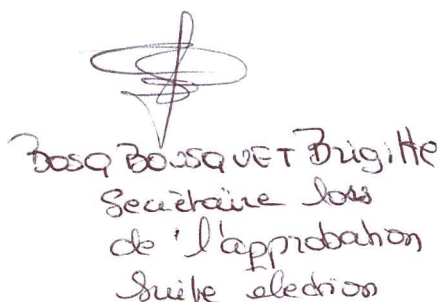 BOSQ BOUSQUET Brigitte
Secrétaire lors
de l'approbation
Suite election